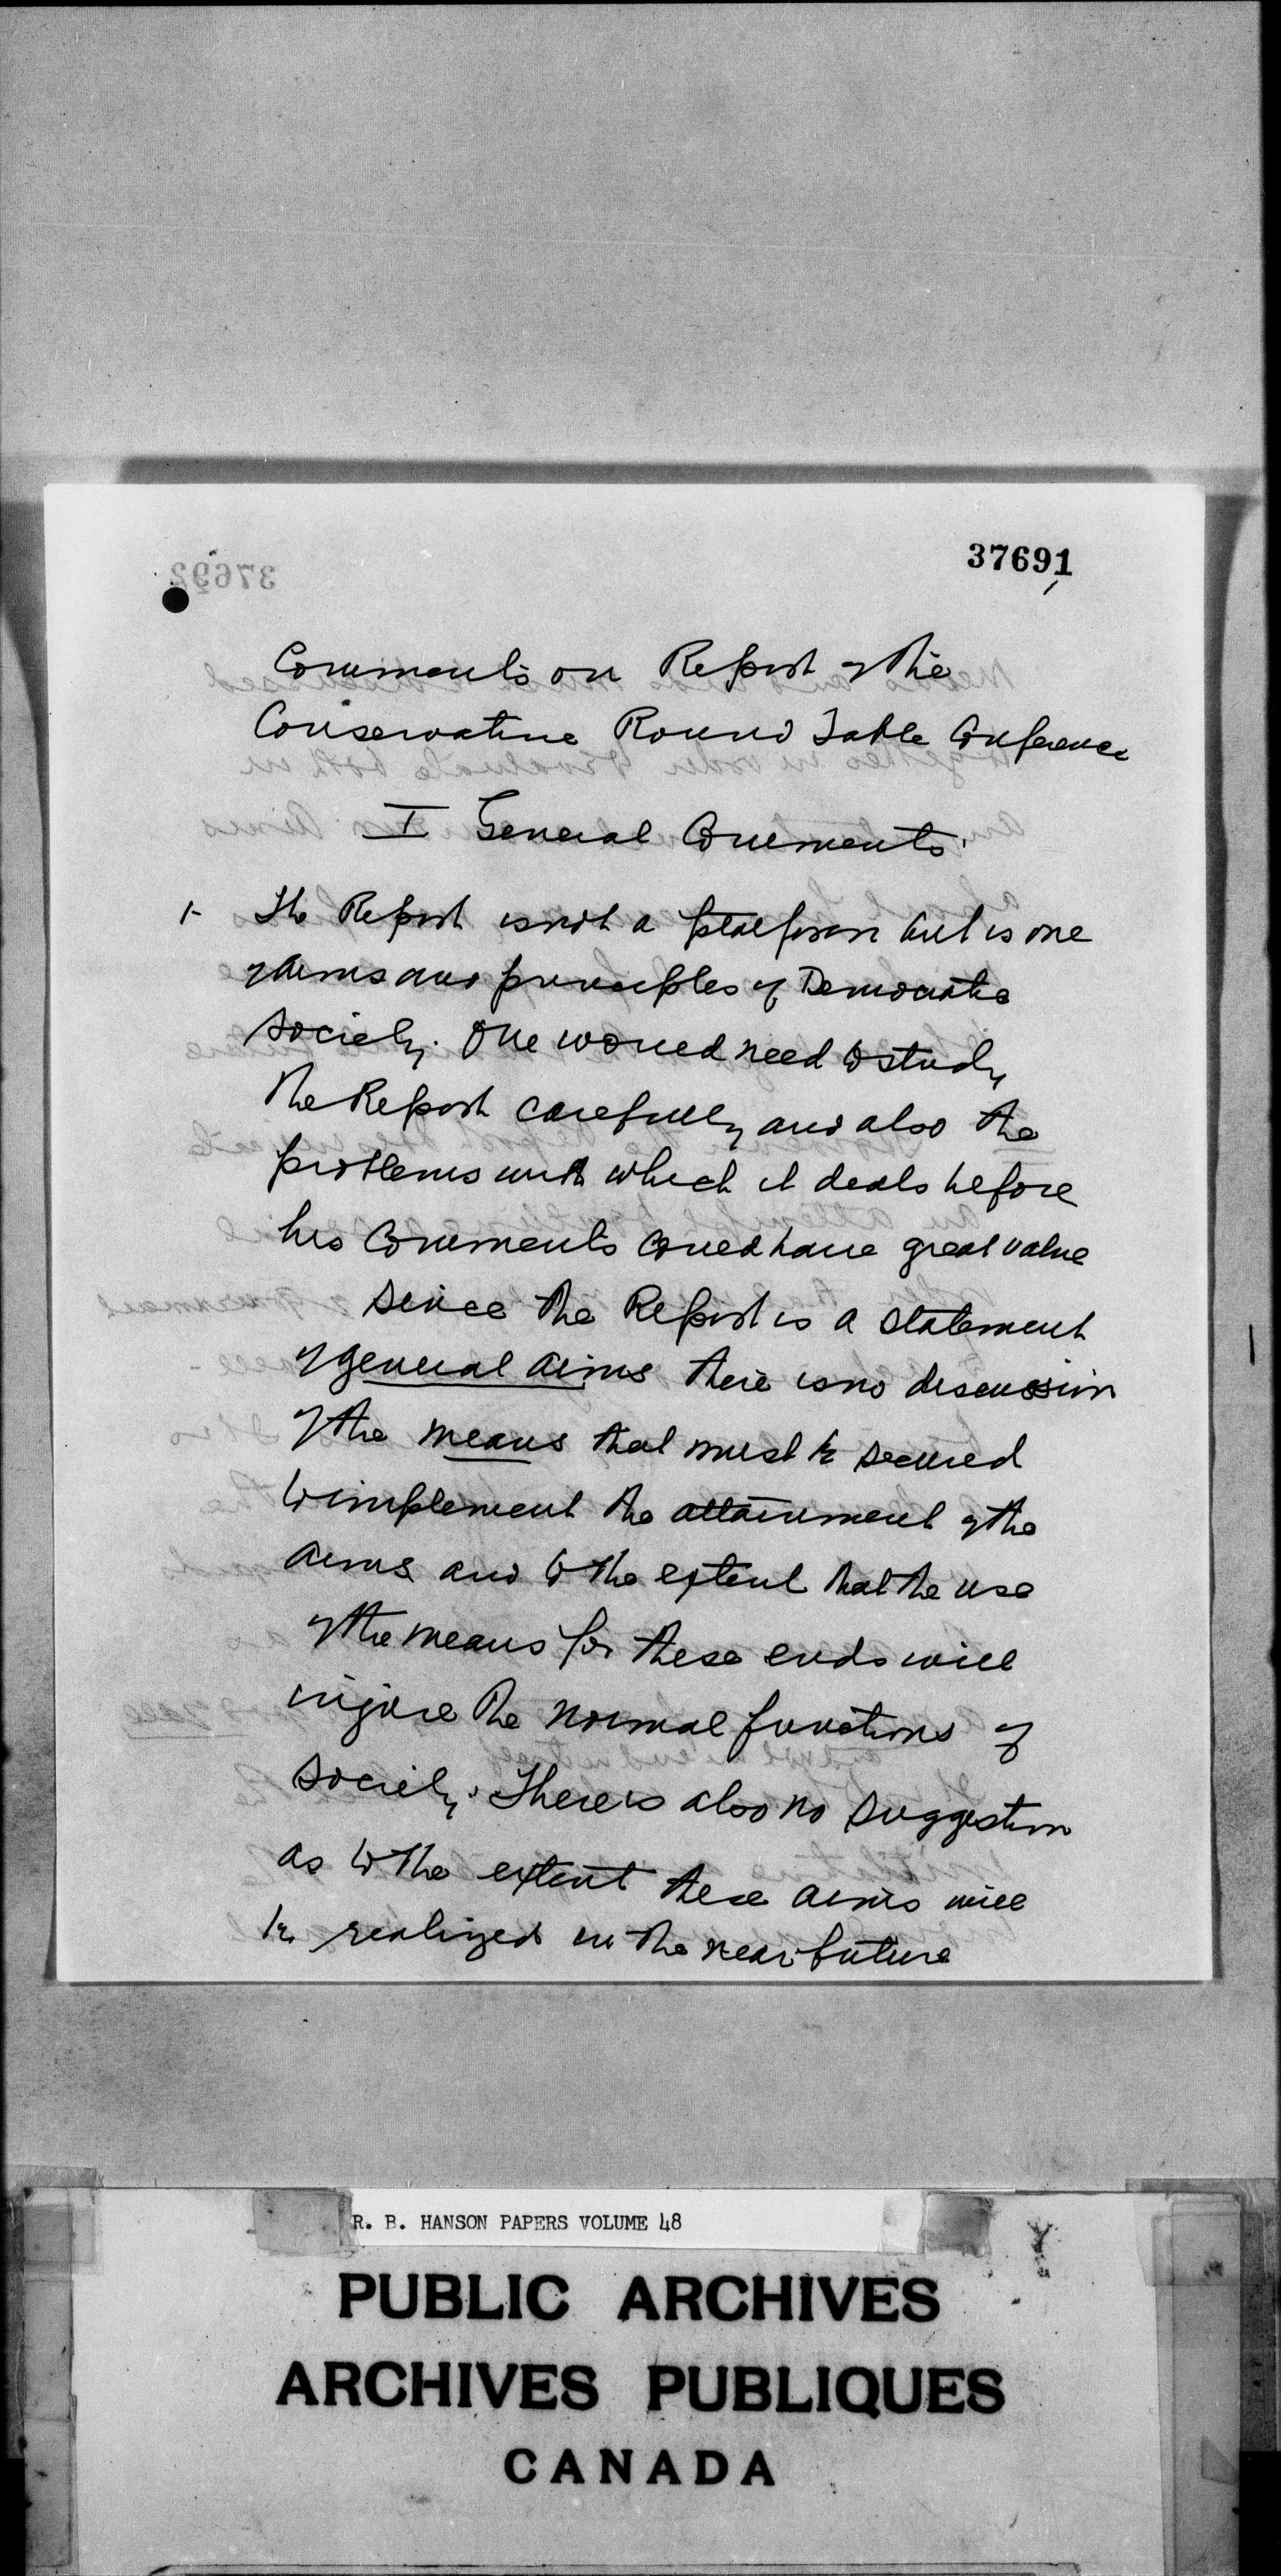 37691
37692
Comments on Report of the
Conservative Round Table Conference
I General Comments.
1- The Report is not a platform but is one
of aims and principles of Democratic
Society. One would need to study
the Report carefully and also the
problems with which it deals before
his comments could have great value
Since the Report is a statement
of general aims there is no discussion
of the means that must be secured
to implement the attainment of the
aims and to the extent that the use
of the means for these ends will
injure the normal functions of
Society. There is also no suggestion
as to the extent these aims will
be realized in the near future
R. B. HANSON PAPERS VOLUME 48
PUBLIC ARCHIVES
ARCHIVES PUBLIQUES
CANADA